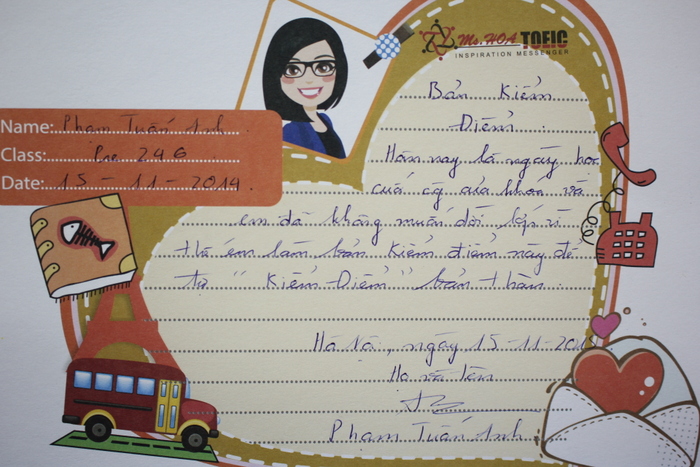 Ms. HOA TOEIC
INSPIRATION MESSENGER
Name: Phạm Tuấn Anh
Class: Pre 246
Date: 15 - 11 - 2014.
Bản Kiểm
Điểm
Hôm nay là ngày học
cuối của khoá và
em đã không muốn dời lớp vì
thế em làm bản kiểm điểm này để
tự " Kiểm Điểm " bản thân.
Hà Nội, ngày 15-11-2014
Họ và tên
Phạm Tuấn Anh